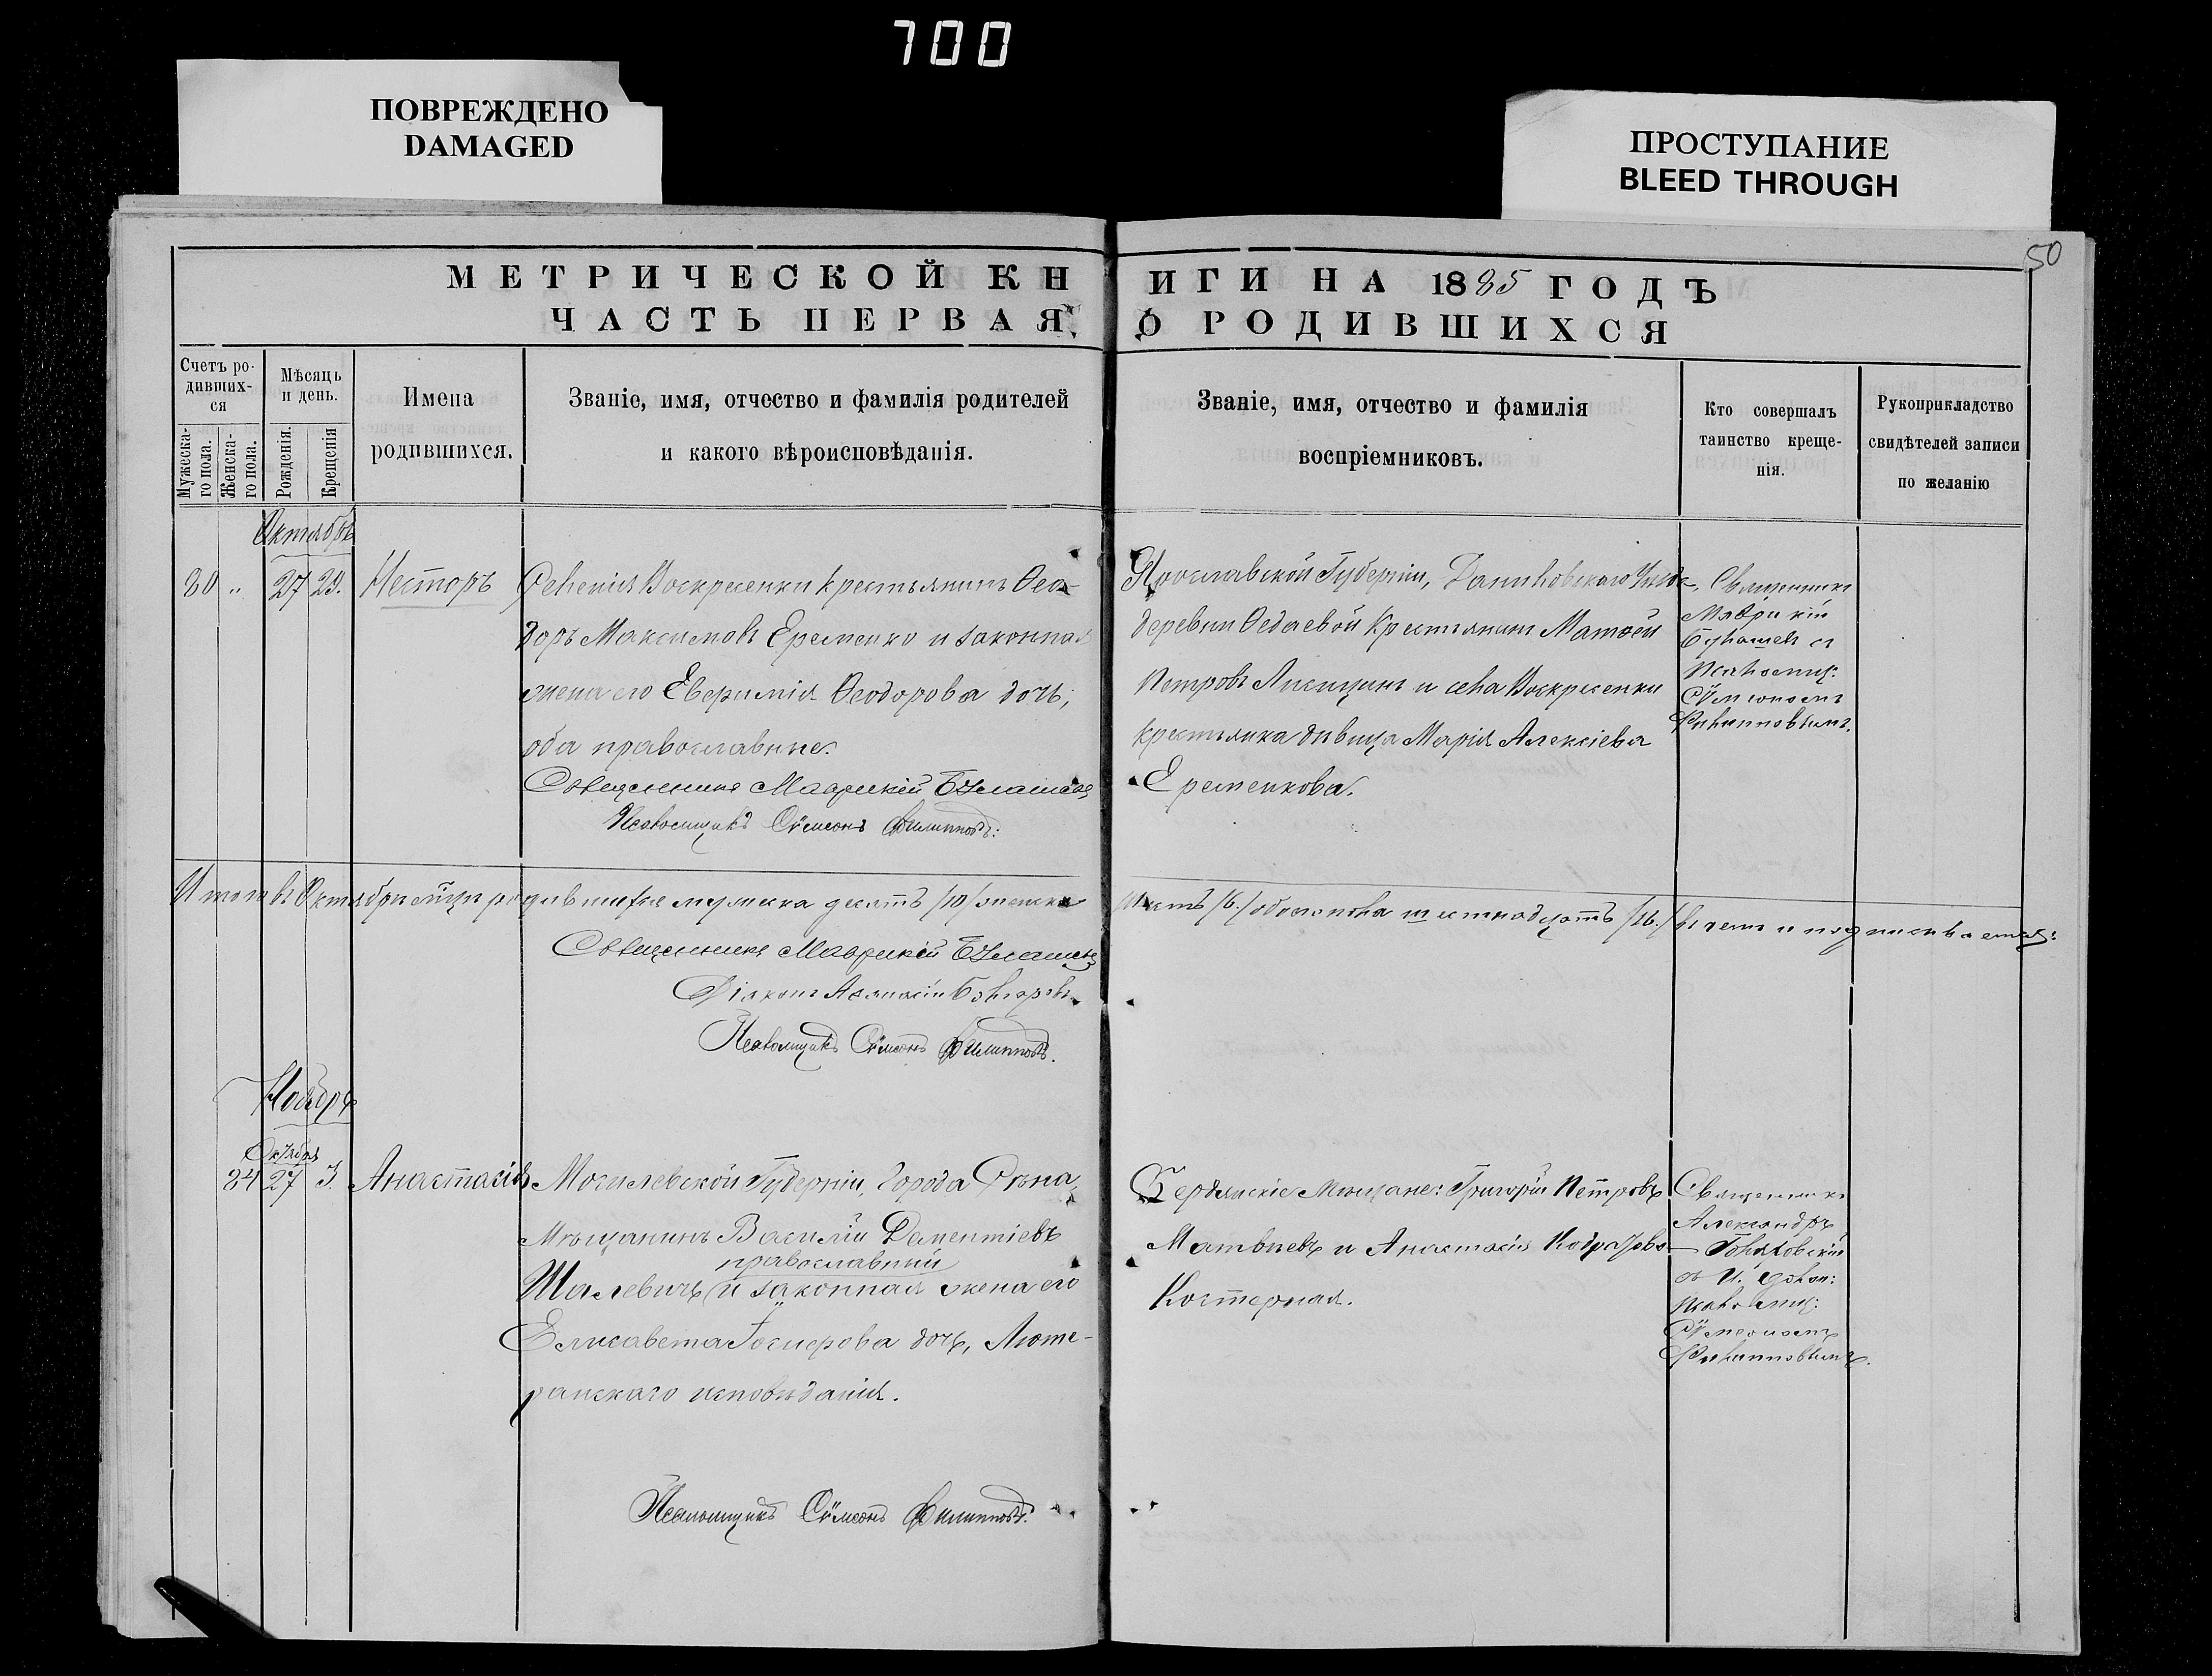 700
ПОВРЕЖДЕНО
DAMAGED
ПРОСТУПАНИЕ
BLEED THROUGH
50
МЕТРИЧЕСКОЙ КНИГИ НА 1885 ГОДЪ
ЧАСТЬ ПЕРВАЯ, О РОДИВШИХСЯ
Счетъ ро-
дивших-
ся
Мужеска-
го пола.
Женска-
го пола.
Мѣсяцъ
и день.
Рожденія.
Крещенія
Имена
родившихся.
Званіе, имя, отчество и фамилія родителей
и какого вѣроисповѣданія.
Званіе, имя, отчество и фамилія
воспріемниковъ.
Кто совершалъ
таинство креще-
нія.
Рукоприкладство
свидѣтелей записи
по желанію
Октябрь
80 „ 27 29. Несторъ
Селенія Воскресенки крестьянинъ Ѳео-
доръ Максимовъ Еременко и законная
жена его Евфимія Ѳеодорова дочь,
оба православные.
Священникъ Маврикій
Псаломщикъ Сѵмеонъ Филипповъ:
Ярославской Губерніи, Даниловскаго Уѣзда,
деревни Ѳедаевой крестьянинъ Матѳей
Петровъ Лисицинъ и села Воскресенки
крестьянка дѣвица Марія Алексіева
Еременкова.
Священникъ
Маврикій
съ
Псаломщ:
Сѵмеономъ
Филипповымъ.
Итого въ Октябрѣ м̃цѣ родившихся мужска десять /10/ женска
шесть /6./ обоего пола шестнадцать /16./ въ чемъ и подписываемся:
Священникъ Маврикій
Діаконъ
Псаломщикъ Сѵмеонъ Филипповъ.
Ноябрь
Октября
84 27 3. Анастасія
Могилевской Губерніи, города Сѣна,
Мѣщанинъ Василій Дементіевъ
православный
Шалевичъ и законная жена его
Елисавета дочь, Люте-
ранскаго исповѣданія.
Псаломщикъ Сѵмеонъ Филипповъ.
Бердянскіе Мѣщане: Григорій Петровъ
Матвѣевъ и Анастасія
Костерная.
Священникъ
Александръ
съ И. д. :
псаломщ:
Сѵмеономъ
Филипповымъ.